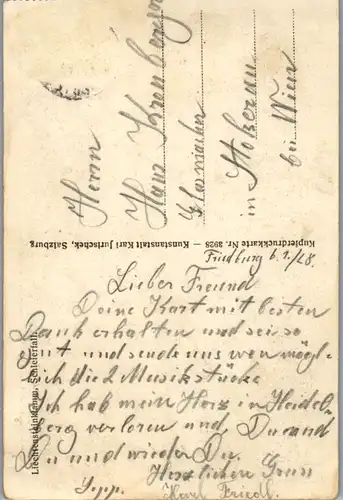 Herrn
Hans Kronberger
Glasmacher
in Stokerau
bei Wien
Kupferdruckkarte Nr. 3928 — Kunstanstalt Karl Jurischek, Salzburg
Liechtensteinklamm, Schleierfall.
Friedburg 6.1./28.
Lieber Freund
Deine Kart mit besten
Dank erhalten und sei so
gut und sende uns wen mögl-
ich die 2 Musikstücke
Ich hab mein Herz in Heidel-
berg verloren und, Du und
Du und wieder Du.
Herzlichen Grus
Sepp. Karl Friedl.